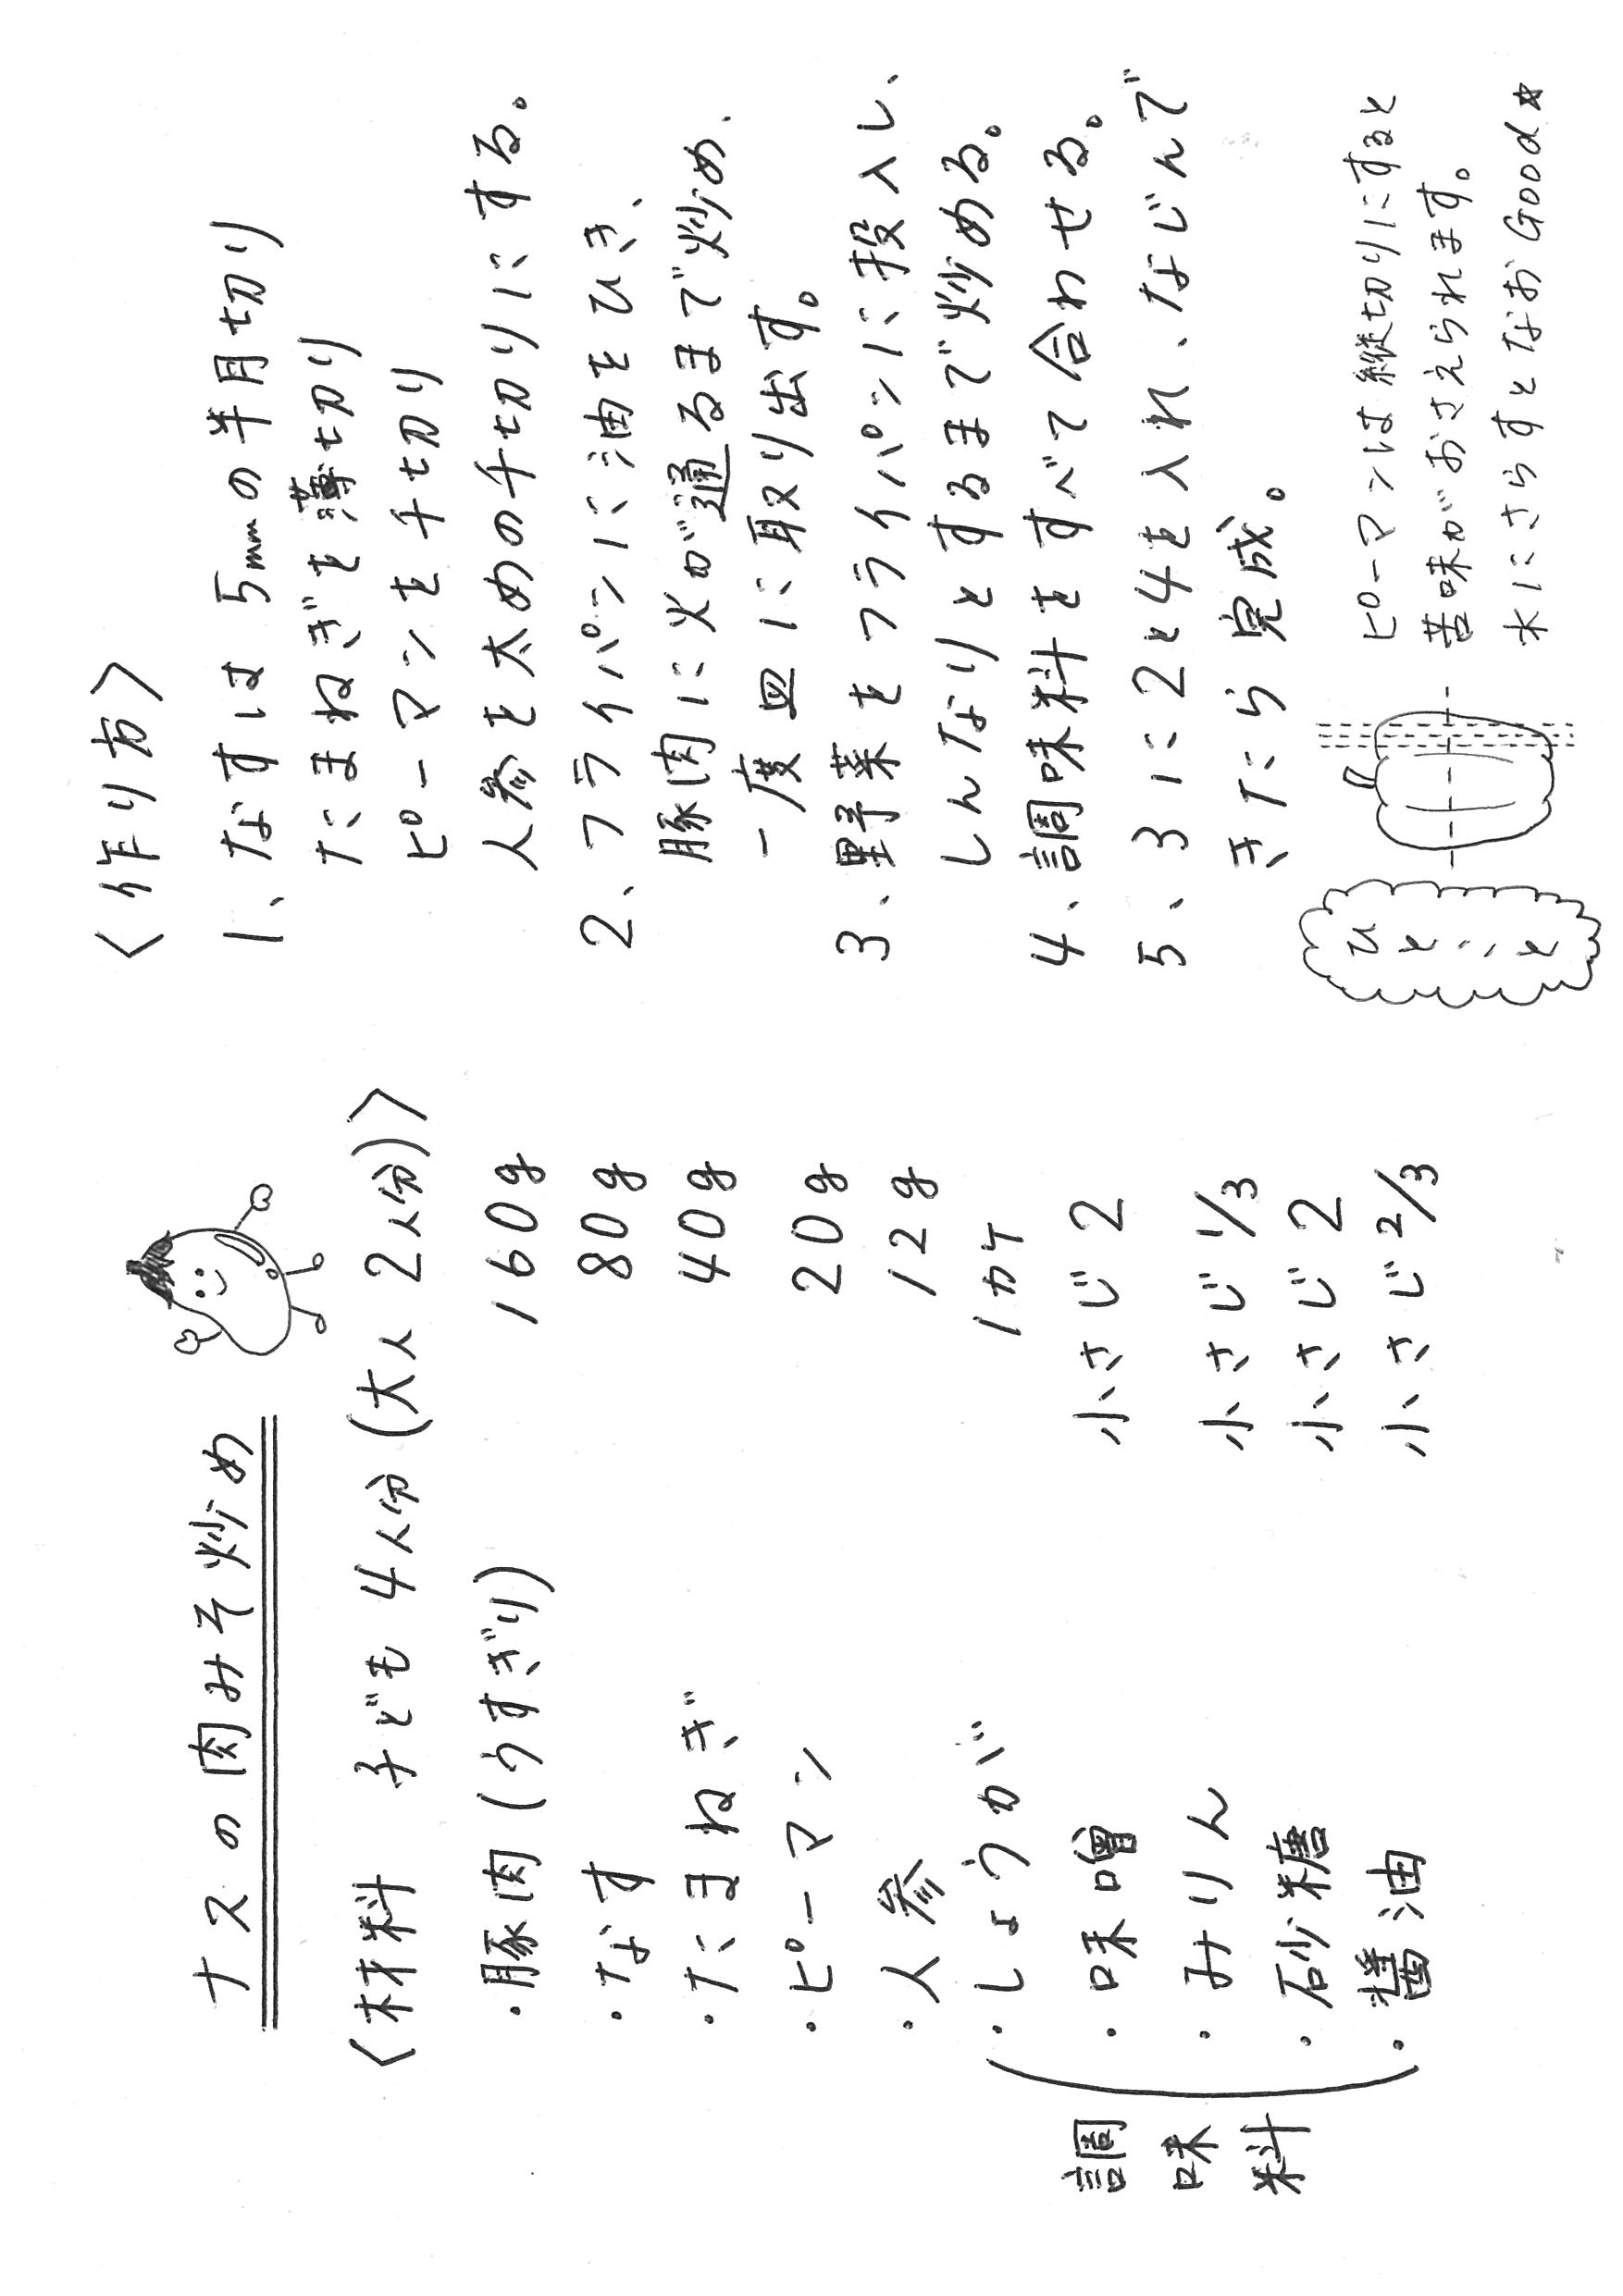 ナスの肉みそ炒め
〈材料 子ども 4人分(大人 2人分)〉
・豚肉(うすぎり) 160g
・なす 80g
・たまねぎ 40g
・ピーマン 20g
・人参 12g
・しょうが 1カケ
・味噌 小さじ 2
・みりん 小さじ 1/3
・砂糖 小さじ 2
・醤油 小さじ 2/3
調味料
〈作り方〉
1、なすは 5mmの半月切り
たまねぎを薄切り
ピーマンを千切り
人参を太めの千切りにする。
2、フライパンに油をひき、
豚肉に火が通るまで炒め、
一度皿に取り出す。
3、野菜をフライパンに投入し、
しんなりとするまで炒める。
4、調味料をすべて合わせる。
5、3に2と4を入れ、なじんで
きたら完成。
ひとこと
ピーマンは縦切りにすると
苦味がおさえられます。
水にさらすとなおGood☆